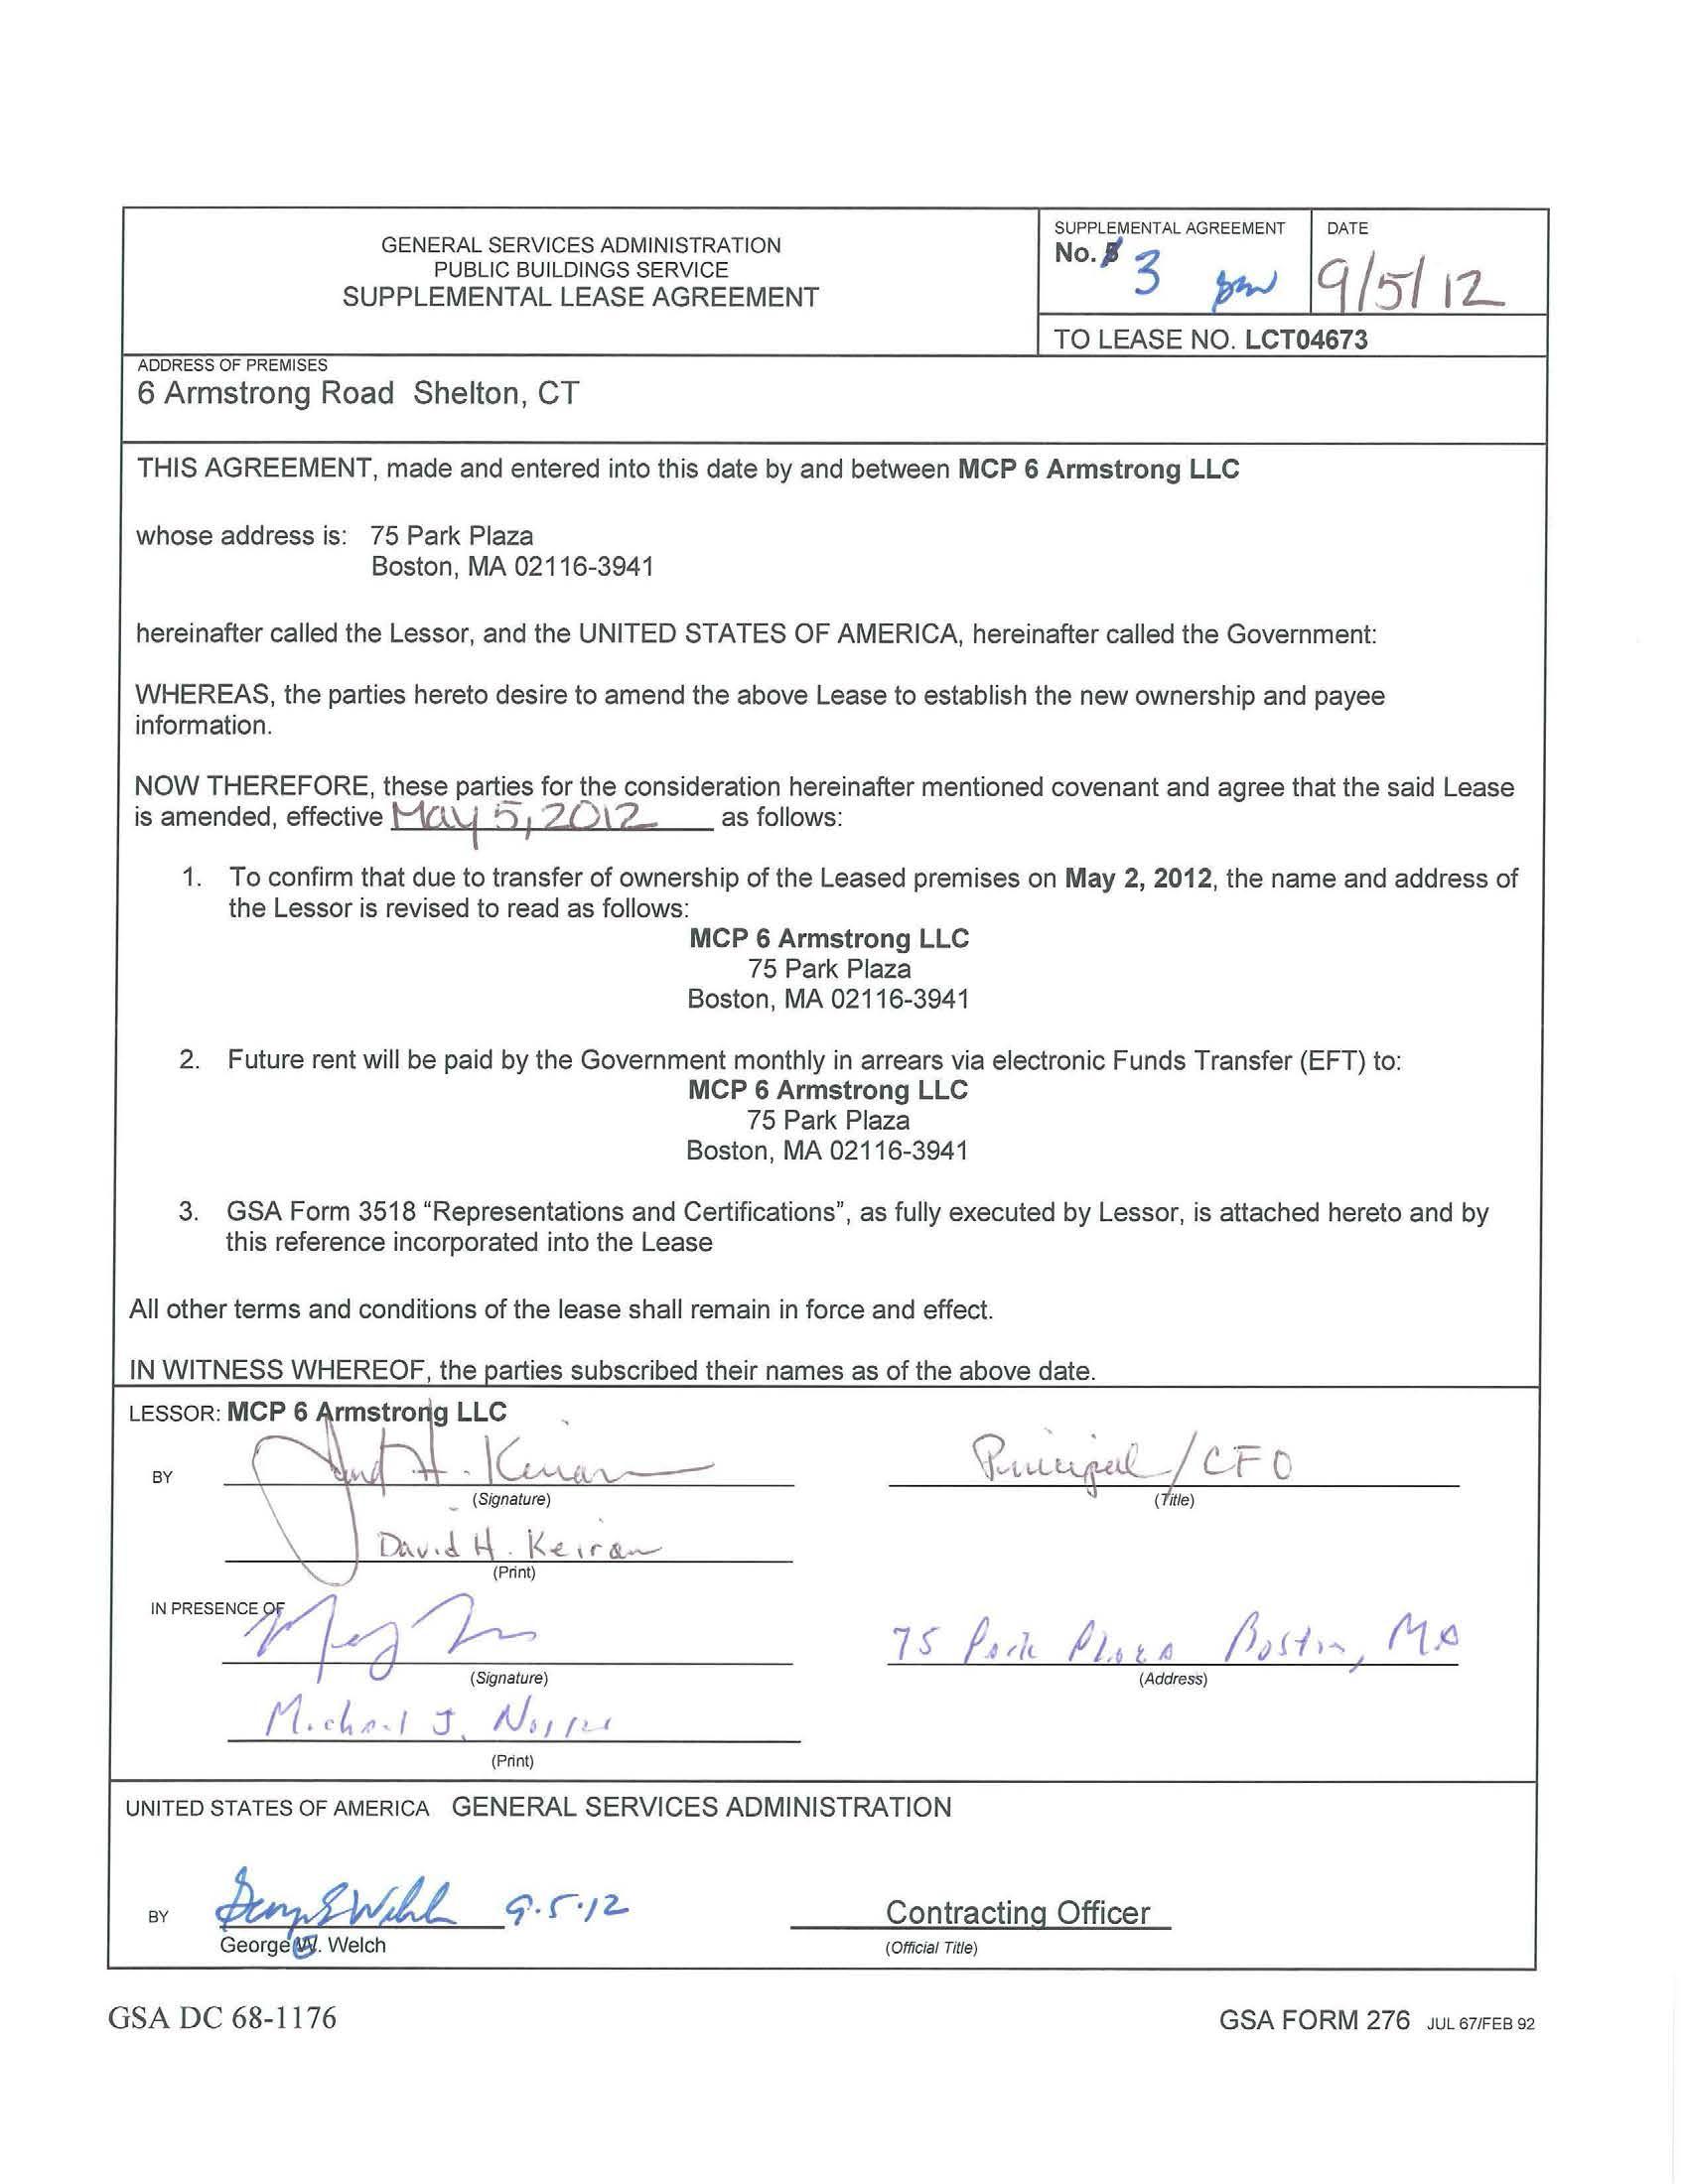 GENERAL SERVICES ADMINISTRATION
PUBLIC BUILDINGS SERVICE
SUPPLEMENTAL LEASE AGREEMENT
SUPPLEMENTAL AGREEMENT
No. 3
DATE
9/5/12
TO LEASE NO. LCT04673
ADDRESS OF PREMISES
6 Armstrong Road Shelton, CT
THIS AGREEMENT, made and entered into this date by and between MCP 6 Armstrong LLC
whose address is: 75 Park Plaza
Boston, MA 02116-3941
hereinafter called the Lessor, and the UNITED STATES OF AMERICA, hereinafter called the Government:
WHEREAS, the parties hereto desire to amend the above Lease to establish the new ownership and payee
information.
NOW THEREFORE, these parties for the consideration hereinafter mentioned covenant and agree that the said Lease
is amended, effective May 5, 2012 as follows:
1. To confirm that due to transfer of ownership of the Leased premises on May 2, 2012, the name and address of
the Lessor is revised to read as follows:
MCP 6 Armstrong LLC
75 Park Plaza
Boston, MA 02116-3941
2. Future rent will be paid by the Government monthly in arrears via electronic Funds Transfer (EFT) to:
MCP 6 Armstrong LLC
75 Park Plaza
Boston, MA 02116-3941
3. GSA Form 3518 “Representations and Certifications”, as fully executed by Lessor, is attached hereto and by
this reference incorporated into the Lease
All other terms and conditions of the lease shall remain in force and effect.
IN WITNESS WHEREOF, the parties subscribed their names as of the above date.
LESSOR: MCP 6 Armstrong LLC
BY
Principal/CFO
(Signature)
(Title)
David H. Keiran
(Print)
IN PRESENCE OF
75 Park Plaza Boston, MA
(Signature)
(Address)
Michael J.
(Print)
UNITED STATES OF AMERICA GENERAL SERVICES ADMINISTRATION
BY
9.5.12
Contracting Officer
George E. Welch
(Official Title)
GSA DC 68-1176
GSA FORM 276 JUL 67/FEB 92